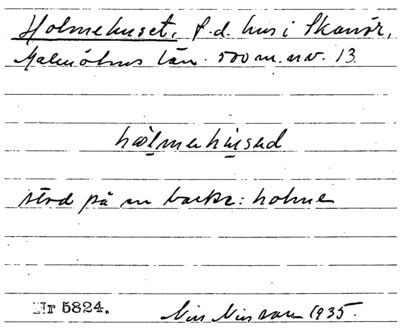 Holmehuset, f.d. hus i Skanör,
Malmöhus län. 500 m. nv. 13.
stod på en backe: holme
Nr 5824. Nils Nilsson 1935.